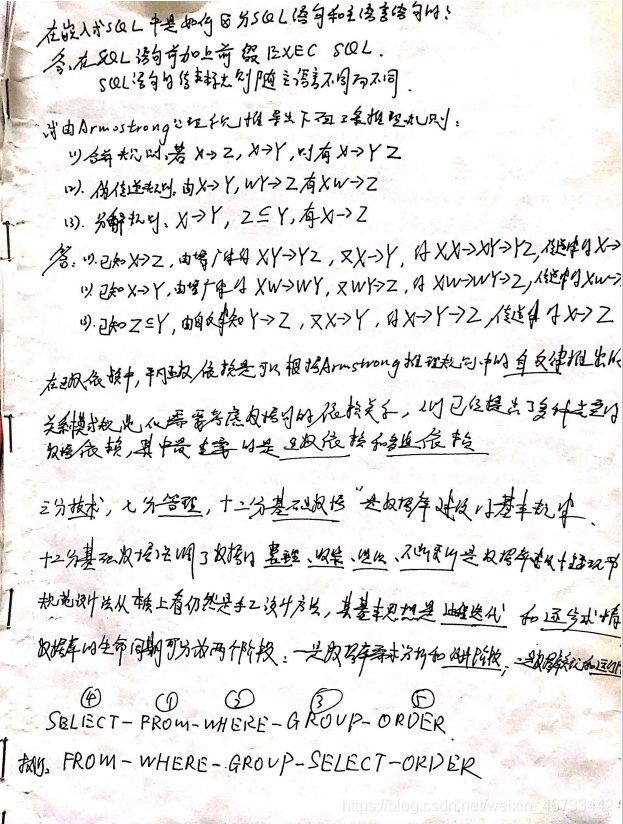 在嵌入式SQL中是如何区分SQL语句和主语言语句的?
答:在SQL语句前加上前缀EXEC SQL.
SQL语句的结束标志则随主语言不同而不同.
试由Armostrong公理系统推导出下面三条推理规则:
(1)合并规则:若X→Z, X→Y,则有X→YZ
(2).伪传递规则:由X→Y, WY→Z有XW→Z
(3).分解规则:X→Y, Z⊆Y,有X→Z
答:(1).已知X→Z,由增广律得XY→YZ,又X→Y,得XX→XY→YZ,传递律得X→
(2).已知X→Y,由增广律得XW→WY,又WY→Z,得XW→WY→Z,传递律得XW→
(3).已知Z⊆Y,由自反律知Y→Z,又X→Y,得X→Y→Z,传递律得X→Z
在函数依赖中,平凡函数依赖是可以根据Armstrong推理规则中的自反律推出的
关系模式规范化需要考虑数据间的依赖关系,人们已经提出了多种类型的
数据依赖,其中最重要的是函数依赖和多值依赖
三分技术,七分管理,十二分基础数据"是数据库建设的基本规律.
十二分基础数据强调了数据的整理、收集、组织、不断更新是数据库建设中
规范设计法从本质上看仍然是手工设计方法,其基本思想是过程迭代和逐步求精
数据库的生命周期可分成两个阶段:一是数据库需求分析和设计阶段;二是数据库
④ ① ② ③ ⑤
SELECT-FROM-WHERE-GROUP-ORDER.
执行:FROM-WHERE-GROUP-SELECT-ORDER
https://blog.csdn.net/weixin_46733442